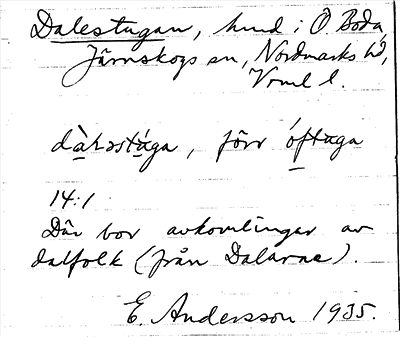 Dalestugan, hmd i Ö. Boda,
Järnskogs sn, Nordmarks hd,
Vrml l.
dàʟəstága, förr óftuga
14:1
Där bor avkomlingar av
dalfolk (från Dalarne).
E. Andersson 1935.